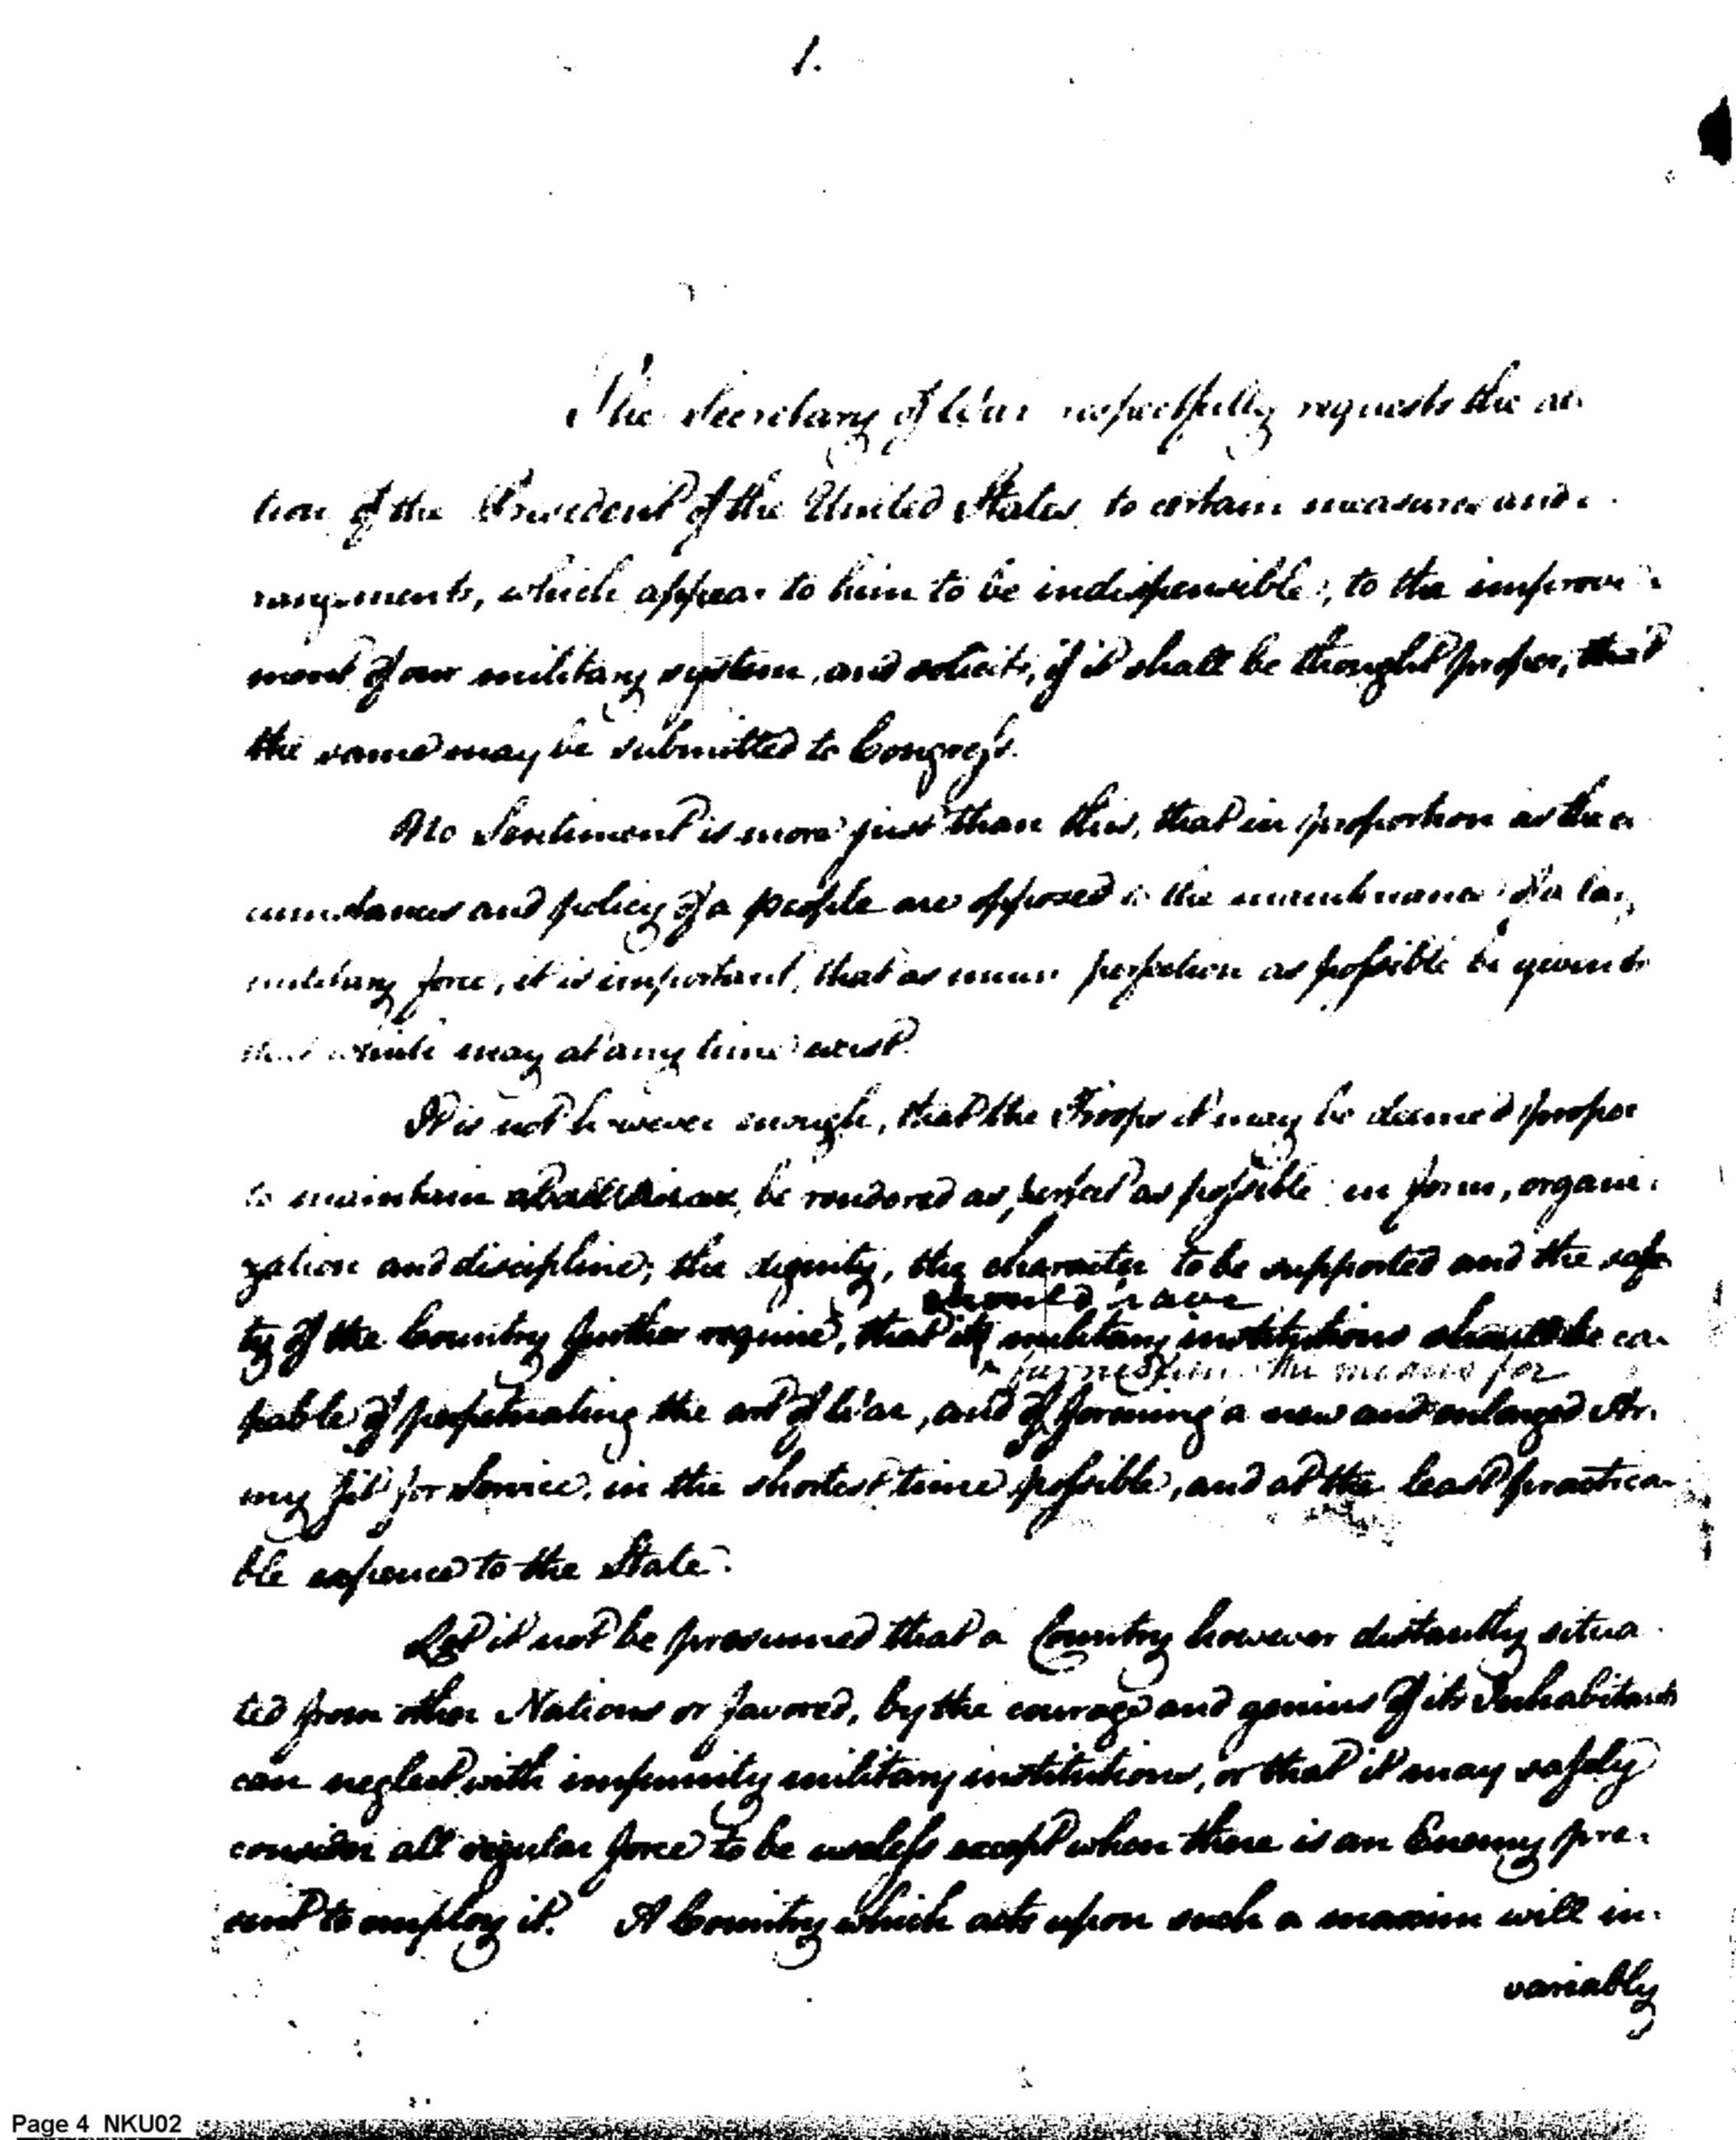 1.
The Secretary of War respectfully requests the
tion of the President of the United States, to certain measures and
rangements, which appear to him to be indispensible, to the improve
ment of our military system, and solicits, if it shall be thought proper, that
the same may be submitted to Congress.
No Sentiment is more just than this, that in proportion as the
cumstances and policy of a people are opposed to the maintenance of a
military force, it is important, that as much perfection as possible be given to
that which may at any time exist.
It is not however enough, that the Troops it may be deemed proper
to maintain be rendered as perfect as possible in form, organi
zation and discipline; the dignity, the character to be supported and the safe
should have
ty of the Country further require, that its military institutions should be ca
furnishing the means for
pable of perpetuating the art of War, and of forming a new and enlarged Ar
my fit for Service, in the shortest time possible, and at the least practica
ble expence to the State.
Let it not be presumed that a Country however distantly situa
ted from other Nations or favored, by the courage and genius of its Inhabitants
can neglect with impunity military institutions, or that it may safely
consider all regular force to be useless except when there is an Enemy pre
sent to employ it. A Country which acts upon such a maxim will in
variably
Page 4 NKU02